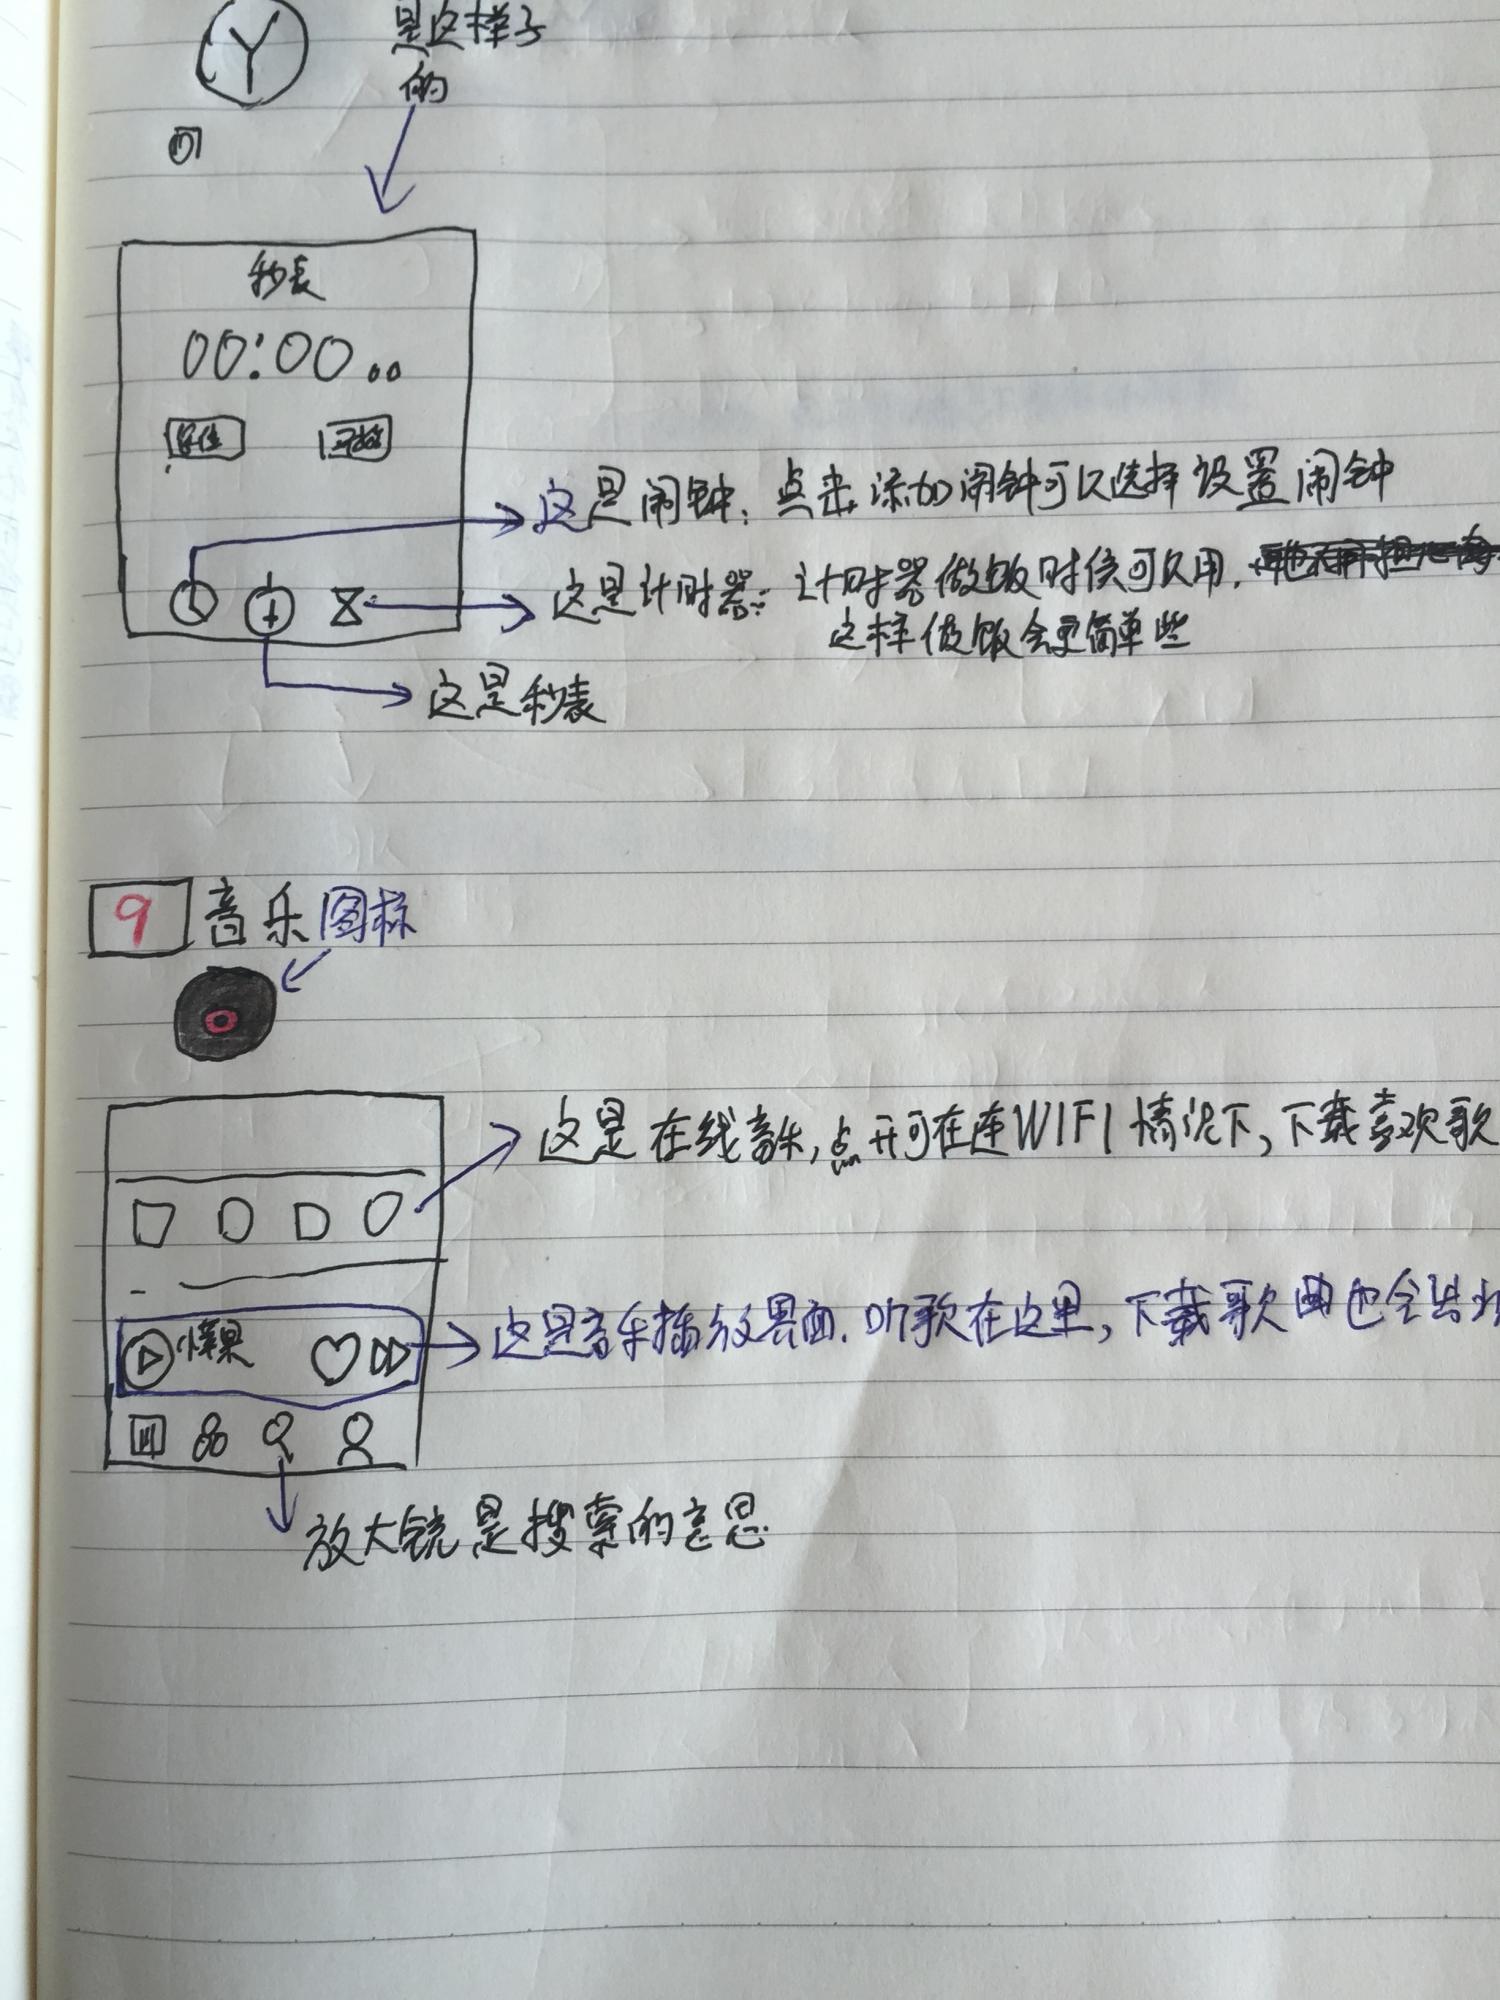 是这样子
的
秒表
00:00.00
复位 开始
这是闹钟:点击添加闹钟可以选择设置闹钟
这是计时器:计时器做饭时候可以用.
这样做饭会更简单些
这是秒表
9 音乐图标
这是在线音乐,点开可在连WIFI情况下,下载喜欢歌
这是音乐播放界面.听歌在这里,下载歌曲也会
放大镜是搜索的意思